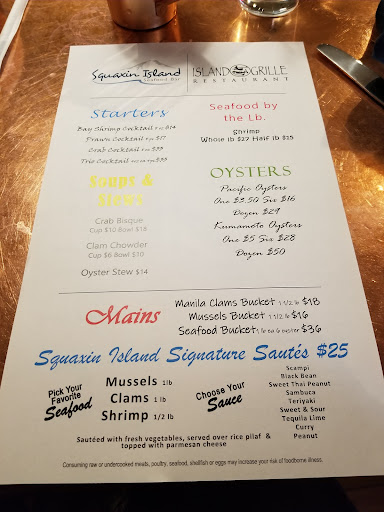 Squaxin Island
Seafood Bar
ISLAND GRILLE
RESTAURANT
Starters
Bay Shrimp Cocktail $14
Prawn Cocktail $17
Crab Cocktail
Trio Cocktail
Seafood by
the Lb.
Shrimp
Whole lb $27 Half lb $15
Soups &
Stews
Crab Bisque
Cup $10 Bowl $18
Clam Chowder
Cup $6 Bowl $10
Oyster Stew $14
OYSTERS
Pacific Oysters
One $3.50 Six $16
Dozen $29
Kumamoto Oysters
One $5 Six $28
Dozen $50
Mains
Manila Clams Bucket 1 1/2 lb $18
Mussels Bucket 1 1/2 lb $16
Seafood Bucket 1 lb ea 6 oyster $36
Squaxin Island Signature Sautés $25
Pick Your
Favorite
Seafood
Mussels 1lb
Clams 1 lb
Shrimp 1/2 lb
Choose Your
Sauce
Scampi
Black Bean
Sweet Thai Peanut
Sambuca
Teriyaki
Sweet & Sour
Tequila Lime
Curry
Peanut
Sautéed with fresh vegetables, served over rice pilaf &
topped with parmesan cheese
Consuming raw or undercooked meats, poultry, seafood, shellfish or eggs may increase your risk of foodborne illness.